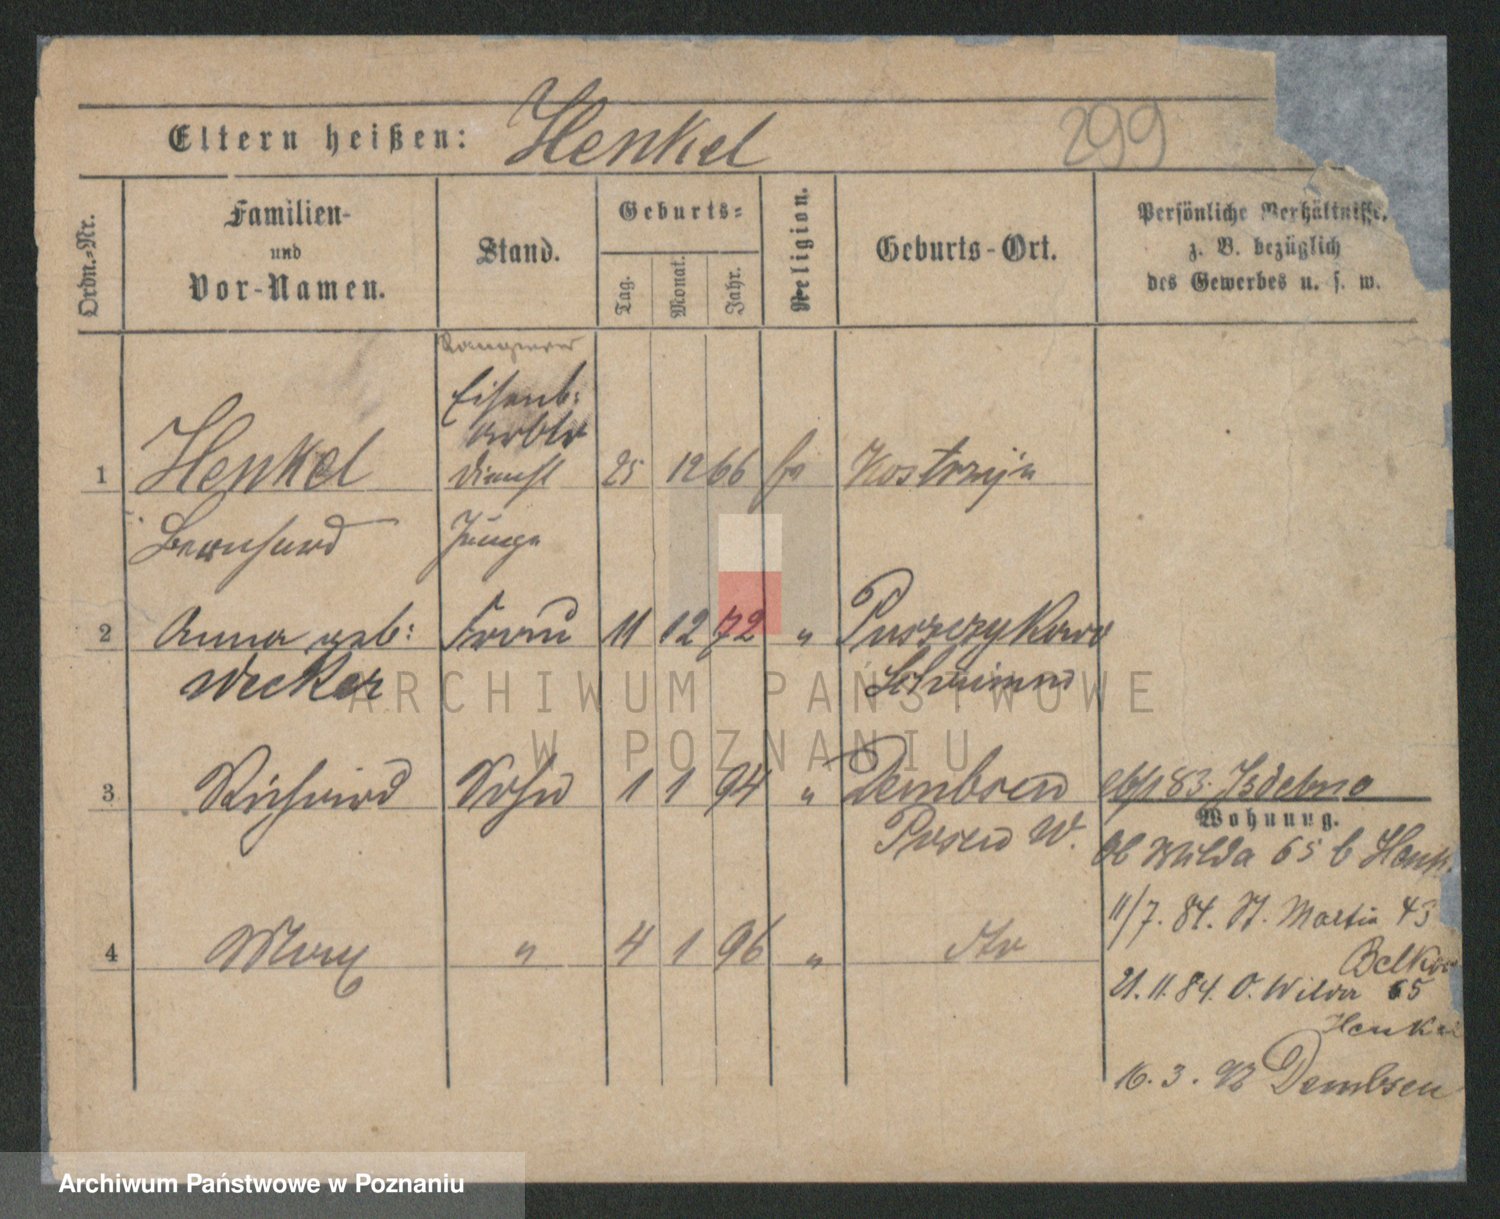 Eltern heißen: Henkel 299
Ordn.-Nr.
Familien-
und
Vor-Namen.
Stand.
Geburts-
Tag.
Monat.
Jahr.
Religion.
Geburts-Ort.
Persönliche Verhältnisse,
z. B. bezüglich
des Gewerbes u. s. w.
Eisenb:
arbtr
1 Henkel Dienst 25 12 66 Kostrzyn
Bernhard Junge
2 Anna geb: Frau 11 12 72 " Puszczykowo
Wecker Schrimm
3 Richard Sohn 1 1 94 " Dembsen 83. Isdebno
Posen W.
Wohnung.
Wilda 65 b Henk.
11/7. 84. St. Martin 43
4 Max " 4 1 96 " dto
Belkow
21.11.84. O. Wilda 65
Henkel
16. 3. 92 Dembsen
ARCHIWUM PAŃSTWOWE
W POZNANIU
Archiwum Państwowe w Poznaniu